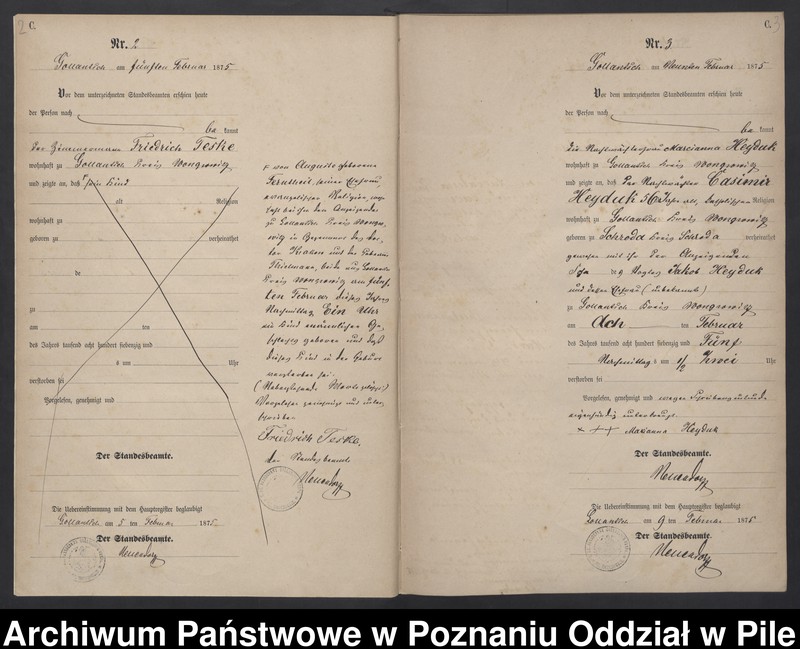 2
C.
Nr. 2
Gollantsch am fünften Februar 1875
Vor dem unterzeichneten Standesbeamten erschien heute
der Person nach
be kannt
der Friedrich Teske
wohnhaft zu Gollantsch Kreis Wongrowitz
und zeigte an, daß sein Kind
alt Religion
wohnhaft zu
geboren zu verheirathet
de
zu
am ten
des Jahres tausend acht hundert siebenzig und
s um Uhr
verstorben sei
Vorgelesen, genehmigt und
Der Standesbeamte.
Die Uebereinstimmung mit dem Hauptregister beglaubigt
Gollantsch am 5 ten Februar 1875.
Der Standesbeamte.
von Auguste geborene
seiner Ehefrau,
evangelischer Religion,
bei ihm dem Anzeigenden
zu Gollantsch Kreis Wongro-
witz in Gegenwart
und der Hebamme
beide aus Gollantsch
Kreis Wongrowitz am fünf-
ten Februar dieses Jahres
Nachmittag Ein Uhr
ein Kind männlichen Ge-
schlechts geboren und daß
dieses Kind in der Geburt
verstorben sei.
Vorgelesen genehmigt und unter-
schrieben
Friedrich Teske.
der Standesbeamte
C. 3
Nr. 3
Gollantsch am Neunten Februar 1875
Vor dem unterzeichneten Standesbeamten erschien heute
der Person nach
be kannt
die Nachtwächterfrau Marcianna Heyduk
wohnhaft zu Gollantsch Kreis Wongrowitz
und zeigte an, daß der Nachtwächter Casimir
Heyduk 56 Jahr alt, katholischer Religion
wohnhaft zu Gollantsch Kreis Wongrowitz
geboren zu Schroda Kreis Schroda verheirathet
gewesen mit ihr der Anzeigenden
Sohn des Jakob Heyduk
und dessen Ehefrau (unbekannt)
zu Gollantsch Kreis Wongrowitz
am Ach ten Februar
des Jahres tausend acht hundert siebenzig und Fünf
Nachmittag s um 1/2 Uhr
verstorben sei
Vorgelesen, genehmigt und wegen
eigenhändig
+ +++ Marianna Heyduk
Der Standesbeamte.
Die Uebereinstimmung mit dem Hauptregister beglaubigt
Gollantsch am 9 ten Februar 1875
Der Standesbeamte.
Archiwum Państwowe w Poznaniu Oddział w Pile